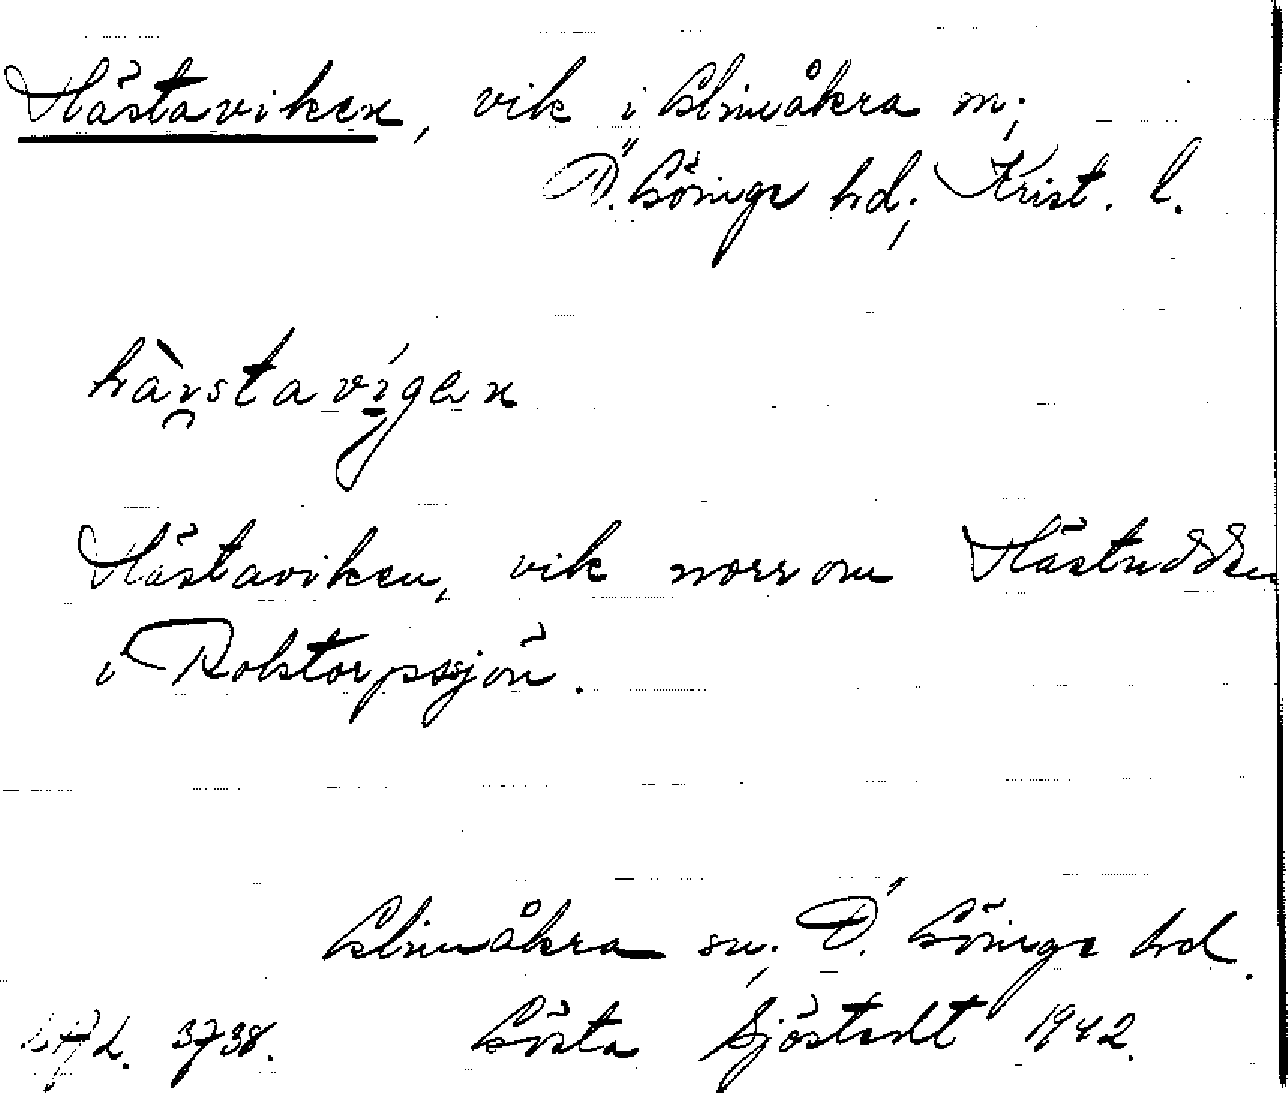 Hästaviken, vik i Glimåkra sn;
Ö. Göinge hd; Krist. l.
hàstavígen
Hästaviken, vik norr om Hästudden
i Rolstorpssjön.
Glimåkra sn; Ö. Göinge hd.
3738. Gösta Sjöstedt 1942.